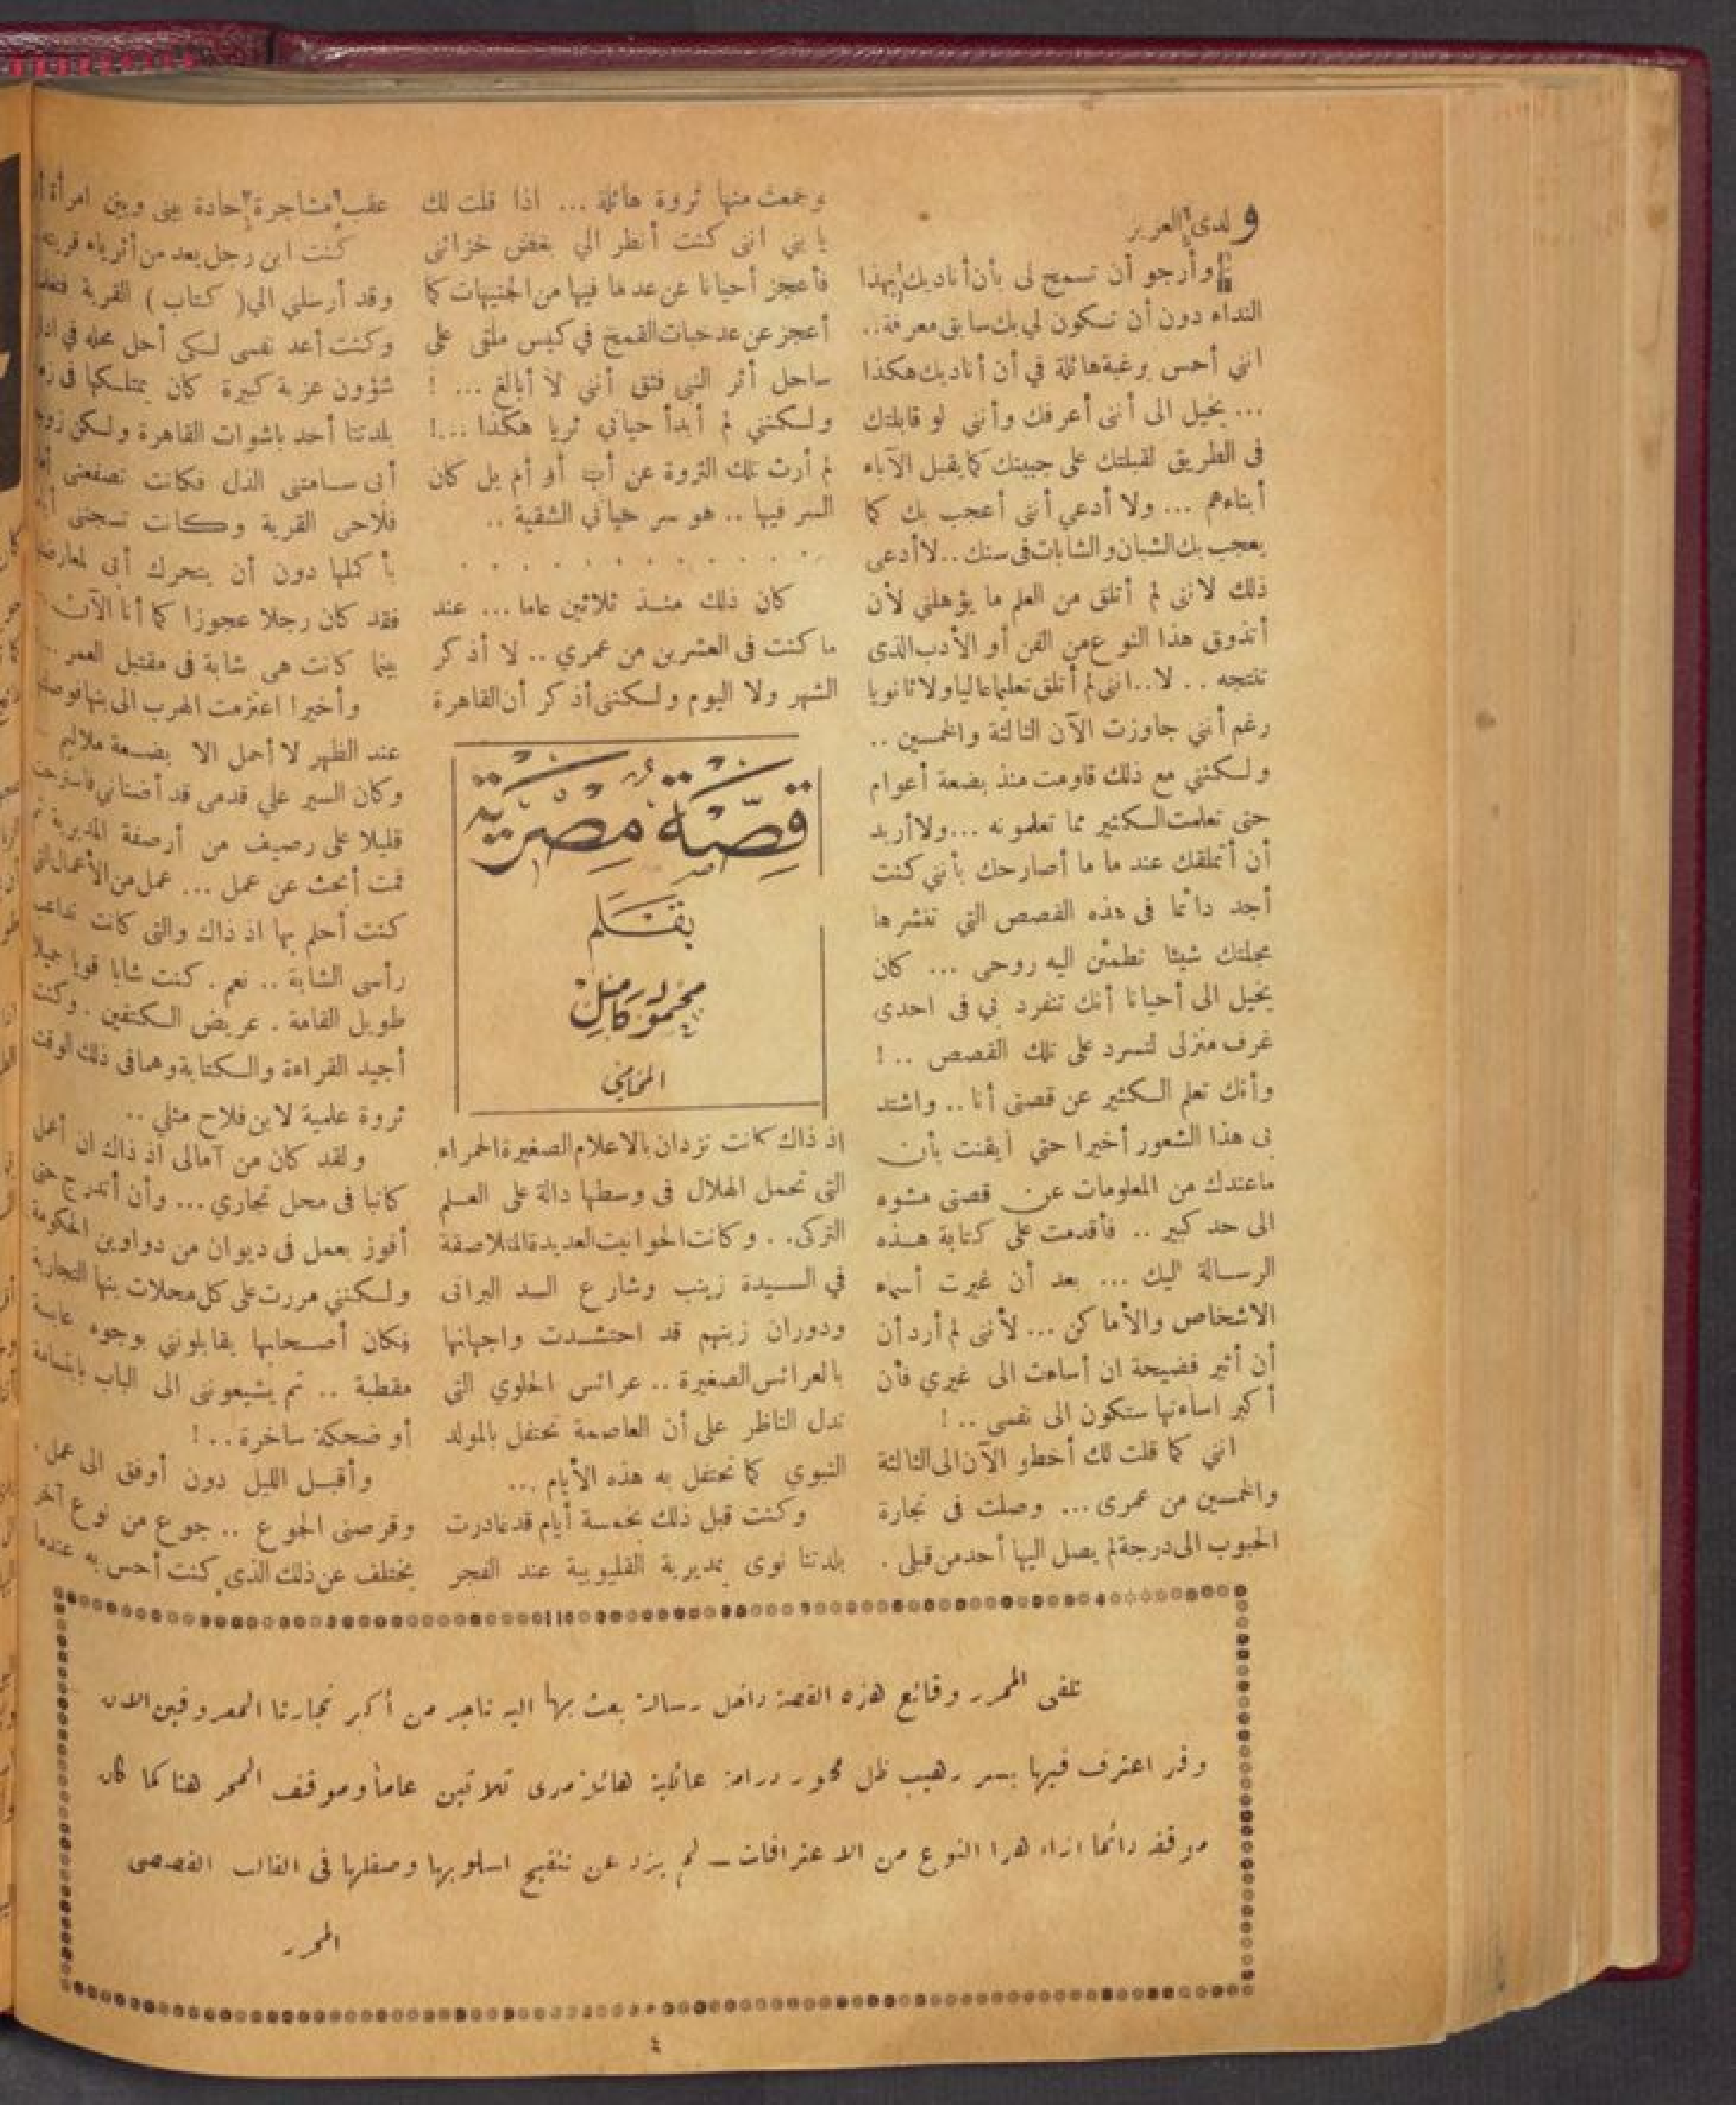 ولدى العزيز
وأرجو أن تسمح لى بأن أناديك بهذا
النداء دون أن تكون لي بك سابق معرفة..
انني أحس برغبة هائلة في أن أناديك هكذا
... يخيل الى أننى أعرفك وأنني لو قابلتك
فى الطريق لقبلتك على جبينك كما يقبل الآباء
أبناءهم ... ولا أدعي أننى أعجب بك كما
يعجب بك الشبان والشابات فى سنك .. لا أدعى
ذلك لاننى لم أتلق من العلم ما يؤهلني لأن
أتذوق هذا النوع من الفن أو الأدب الذى
تنتجه .. لا.. اننى لم أتلق تعليما عاليا ولا ثانويا
رغم أنني جاوزت الآن الثالثة والخمسين ..
ولكنني مع ذلك قاومت منذ بضعة أعوام
حتى تعلمت الكثير مما تعلمونه ... ولا أريد
أن أتملقك عند ما ما أصارحك بأنني كنت
أجد دائما فى هذه القصص التي تنشرها
مجلتك شيئا تطمئن اليه روحى ... كان
يخيل الى أحيانا أنك تنفرد بي فى احدى
غرف منزلى لتسرد على تلك القصص ..!
وأنك تعلم الكثير عن قصتى أنا .. واشتد
بى هذا الشعور أخيرا حتي أيقنت بأن
ماعندك من المعلومات عن قصتى مشوه
الى حد كبير .. فأقدمت على كتابة هذه
الرسالة اليك ... بعد أن غيرت أسماء
الاشخاص والأماكن ... لأننى لم أرد أن
أن أثير فضيحة ان أساءت الى غيري فأن
أكبر اساءتها ستكون الى نفسى ..!
انني كما قلت لك أخطو الآن الى الثالثة
والخمسين من عمرى ... وصلت فى تجارة
الحبوب الى درجة لم يصل اليها أحد من قبلى .
وجمعت منها ثروة هائلة ... اذا قلت لك
يا بني اننى كنت أنظر الي بعض خزائنى
فأعجز أحيانا عن عد ما فيها من الجنيهات كما
أعجز عن عد حبات القمح في كيس ملقى على
ساحل أثر النبي فثق أنني لا أبالغ ... !
ولكنني لم أبدأ حياتي ثريا هكذا ...!
لم أرث تلك الثروة عن أب أو أم بل كان
السر فيها .. هو سر حياتي الشقية ..
. . . . . . . . . . .
كان ذلك منذ ثلاثين عاما ... عند
ما كنت فى العشرين من عمري .. لا أذكر
الشهر ولا اليوم ولكننى أذكر أن القاهرة
قصة مصرية
بقلم
محمود كامل
المحامي
اذ ذاك كانت تزدان بالاعلام الصغيرة الحمراء
التى تحمل الهلال فى وسطها دالة على العلم
التركى. . وكانت الحوانيت العديدة المتلاصقة
في السيدة زينب وشارع السد البرانى
ودوران زينهم قد احتشدت واجهاتها
بالعرائس الصغيرة .. عرائس الحلوي التى
تدل الناظر على أن العاصمة تحتفل بالمولد
النبوي كما تحتفل به هذه الأيام ...
وكنت قبل ذلك بخمسة أيام قد غادرت
بلدتنا نوى بمديرية القليوبية عند الفجر
عقب مشاجرة حادة بيني وبين امرأة
كنت ابن رجل يعد من أثرياء قريته
وقد أرسلني الي ( كتاب ) القرية
وكنت أعد نفسى لكى أحل محله في
شؤون عزبة كبيرة كان يمتلكها فى
بلدتنا أحد باشوات القاهرة ولكن
أبى سامتني الذل فكانت تصفعنى
فلاحى القرية وكانت تسجننى
بأكملها دون أن يتحرك أبى
فقد كان رجلا عجوزا كما أنا الآن
بينما كانت هى شابة فى مقتبل العمر ..
وأخيرا اعتزمت الهرب الى بنها
عند الظهر لا أحمل الا بضعة ملاليم
وكان السير علي قدمى قد أضنانى فاسترحت
قليلا على رصيف من أرصفة المديرية
قمت أبحث عن عمل ... عمل من الأعمال التى
كنت أحلم بها اذ ذاك والتى كانت تداعب
رأسى الشابة .. نعم . كنت شابا قويا جميلا
طويل القامة . عريض الكتفين . وكنت
أجيد القراءة والكتابة وهما فى ذلك الوقت
ثروة علمية لابن فلاح مثلي ..
ولقد كان من آمالى اذ ذاك ان أعمل
كاتبا فى محل تجاري ... وأن أتدرج حتى
أفوز بعمل فى ديوان من دواوين الحكومة
ولكنني مررت على كل محلات بنها التجارية
فكان أصحابها يقابلونني بوجوه عابسة
مقطبة .. ثم يشيعوننى الى الباب بابتسامة
أو ضحكة ساخرة ..!
وأقبل الليل دون أوفق الى عمل .
وقرصنى الجوع .. جوع من نوع آخر
يختلف عن ذلك الذى كنت أحس به عندما
تلقى المحرر وقائع هذه القصة داخل رسالة بعث بها اليه تاجر من أكبر تجارنا المعروفين الان
وقد اعترف فيها بسر رهيب ظل محور درامة عائلية هائلة مدى ثلاثين عاما وموقف المحرر هنا كما كان
موقفه دائما ازاء هذا النوع من الاعترافات ــ لم يزد عن تنقيح اسلوبها وصقلها فى القالب القصصى
المحرر
٤